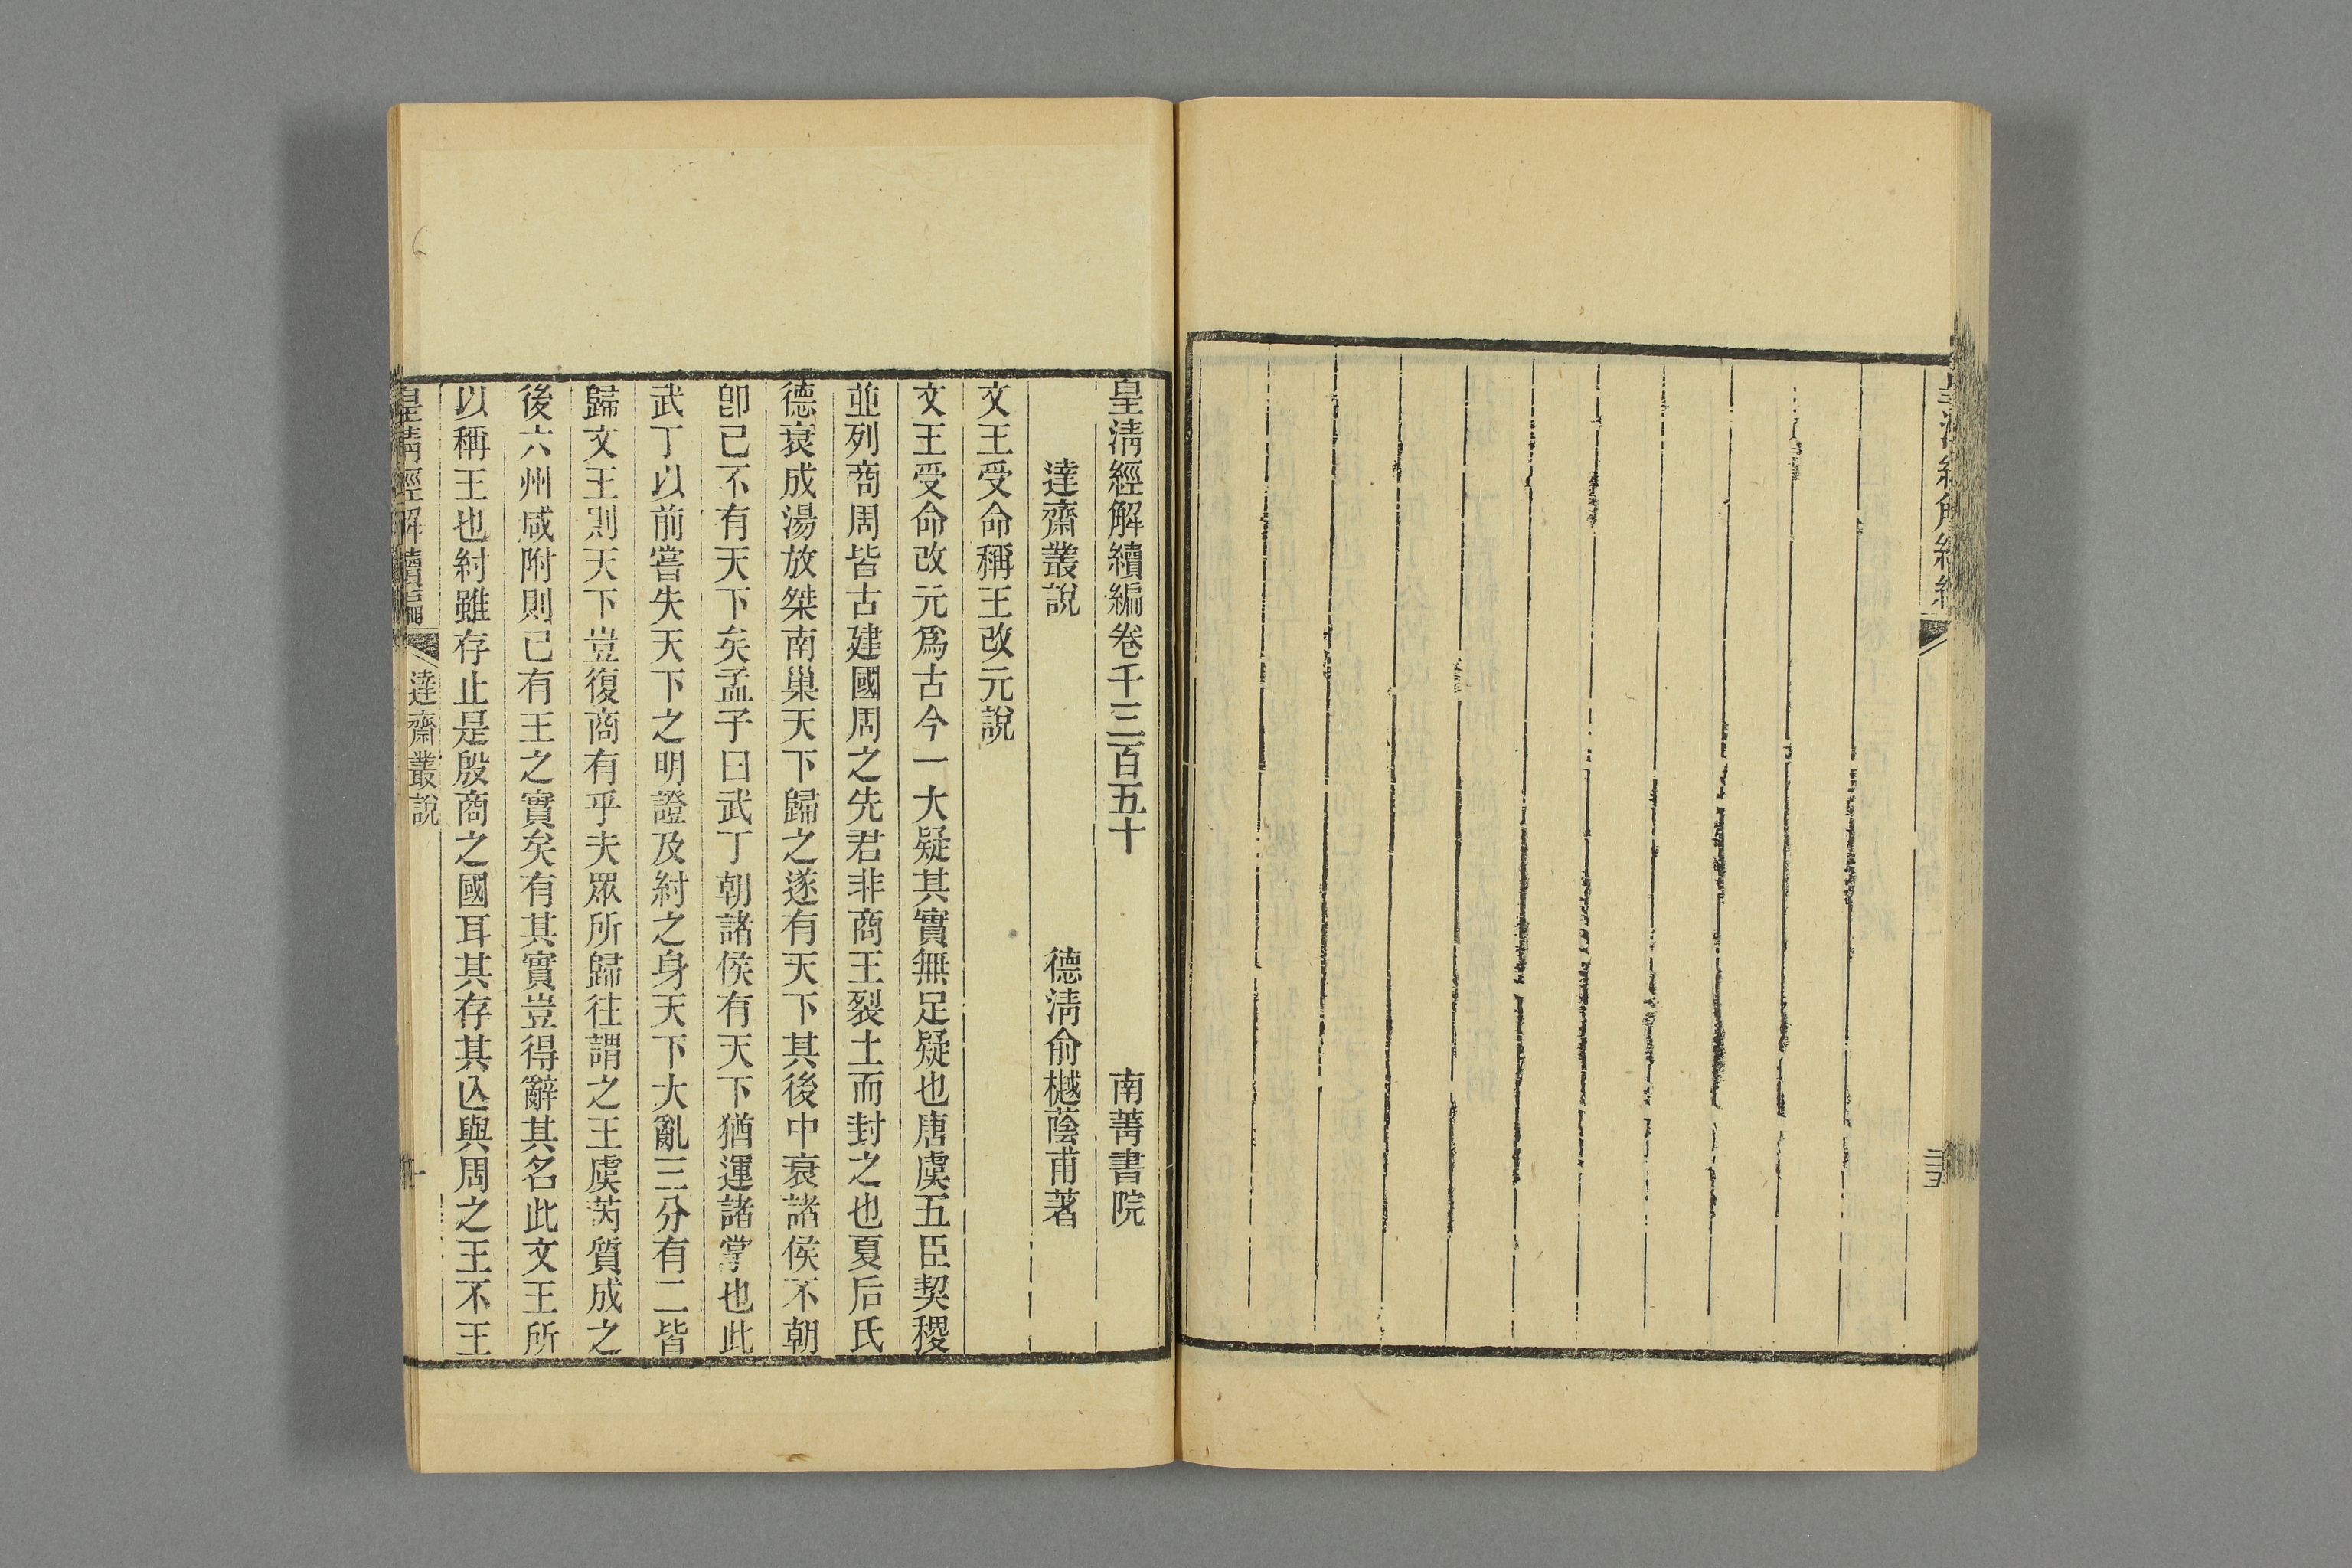 皇清經解續編
皇清經解續編卷千三百五十　南菁書院
達齋叢說　德清俞樾蔭甫著
文王受命稱王改元說
文王受命改元爲古今一大疑其實無足疑也唐虞五臣契稷
並列商周皆古建國周之先君非商王裂土而封之也夏后氏
德衰成湯放桀南巢天下歸之遂有天下其後中衰諸侯不朝
卽已不有天下矣孟子曰武丁朝諸侯有天下猶運諸掌也此
武丁以前嘗失天下之明證及紂之身天下大亂三分有二皆
歸文王則天下豈復商有乎夫眾所歸往謂之王虞芮質成之
後六州咸附則已有王之實矣有其實豈得辭其名此文王所
以稱王也紂雖存止是殷商之國耳其存其亾與周之王不王
皇清經解續編　達齋叢說　一